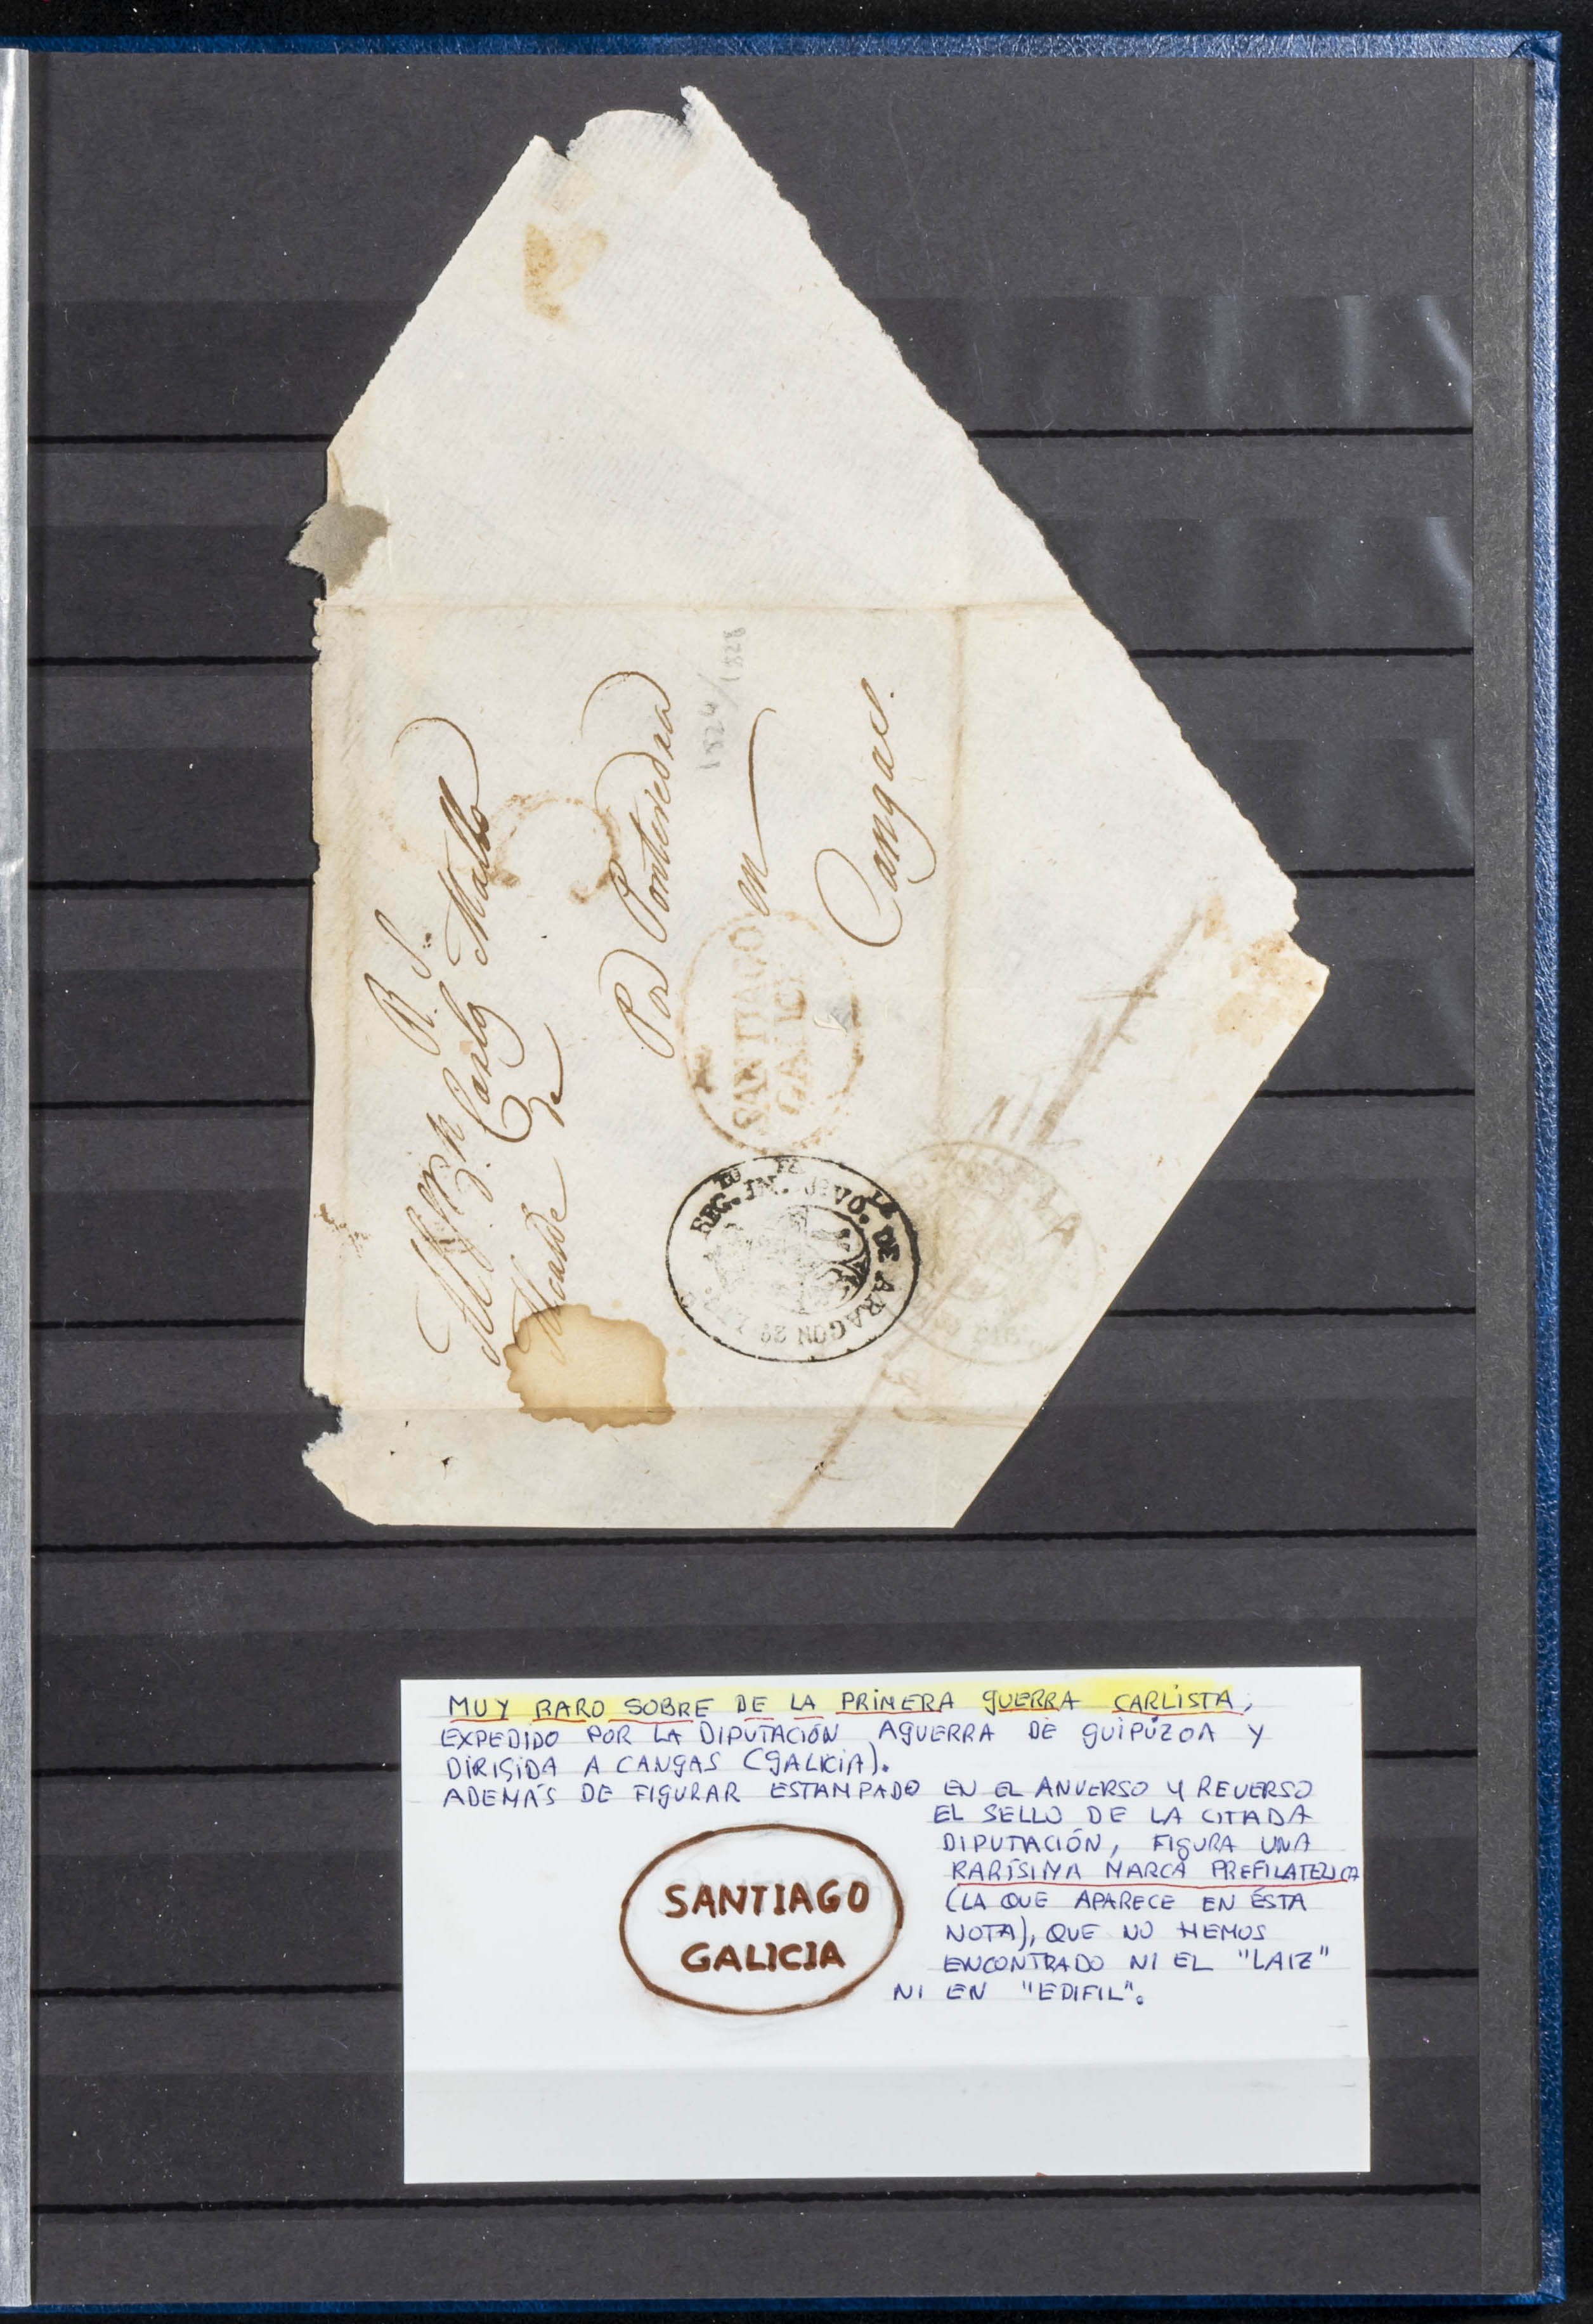 R. S.
Carlos Mallo
Alcalde de
Por Pontevedra
en
Cangas.
1824/1828
SANTIAGO
GALICI
REG. IN.
VO. LO. DE ARAGON 20
MUY RARO SOBRE DE LA PRIMERA GUERRA CARLISTA,
EXPEDIDO POR LA DIPUTACIÓN AGUERRA DE GUIPÚZOA Y
DIRIGIDA A CANGAS (GALICIA).
ADEMÁS DE FIGURAR ESTAMPADO EN EL ANVERSO Y REVERSO
EL SELLO DE LA CITADA
DIPUTACIÓN, FIGURA UNA
RARÍSIMA MARCA PREFILATELICA
(LA QUE APARECE EN ÉSTA
NOTA), QUE NO HEMOS
ENCONTRADO NI EL "LAIZ"
NI EN "EDIFIL".
SANTIAGO
GALICIA